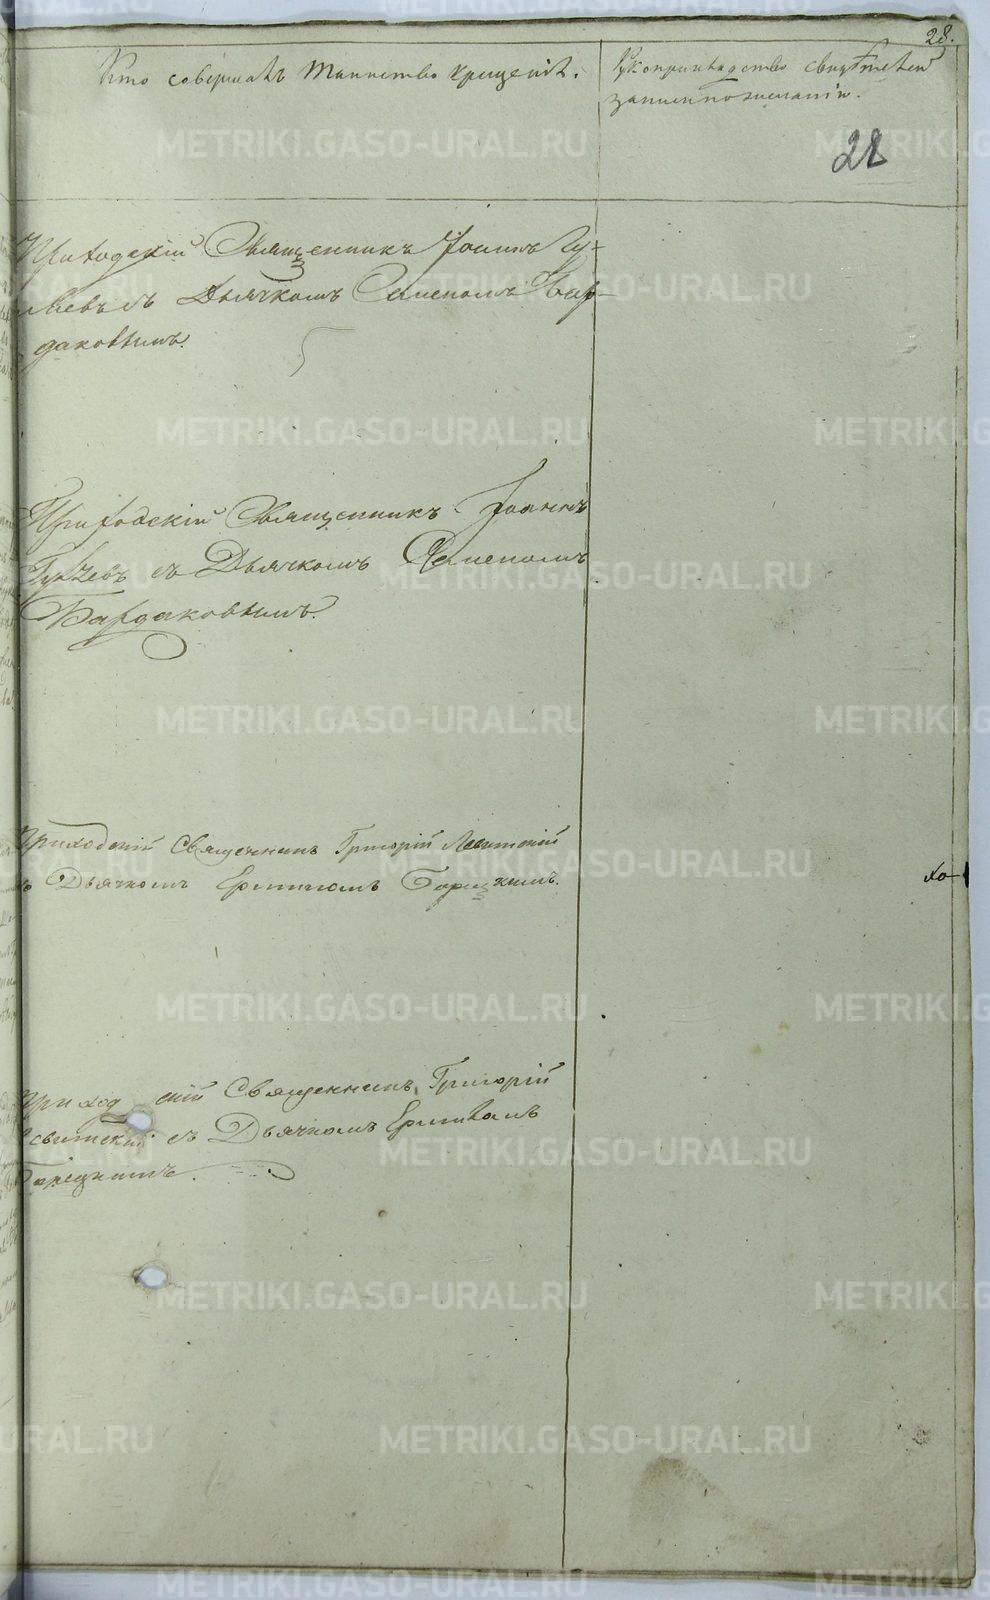 28.
Кто совершалъ таинство крещенія.
Рукоприкладство свидѣтелей
записи по желанію.
28
Приходскій Священникъ Іоаннъ Гу-
съ Дьячкомъ Семеномъ Бар-
даковымъ.
Приходскій Священникъ Іоаннъ
съ Дьячкомъ Семеномъ
Бардаковымъ.
Приходскій Священникъ Григорій Левитскій
съ Дьячкомъ
хо-
Приход скій Священникъ Григорій
Левитскій съ Дьячкомъ
METRIKI.GASO-URAL.RU